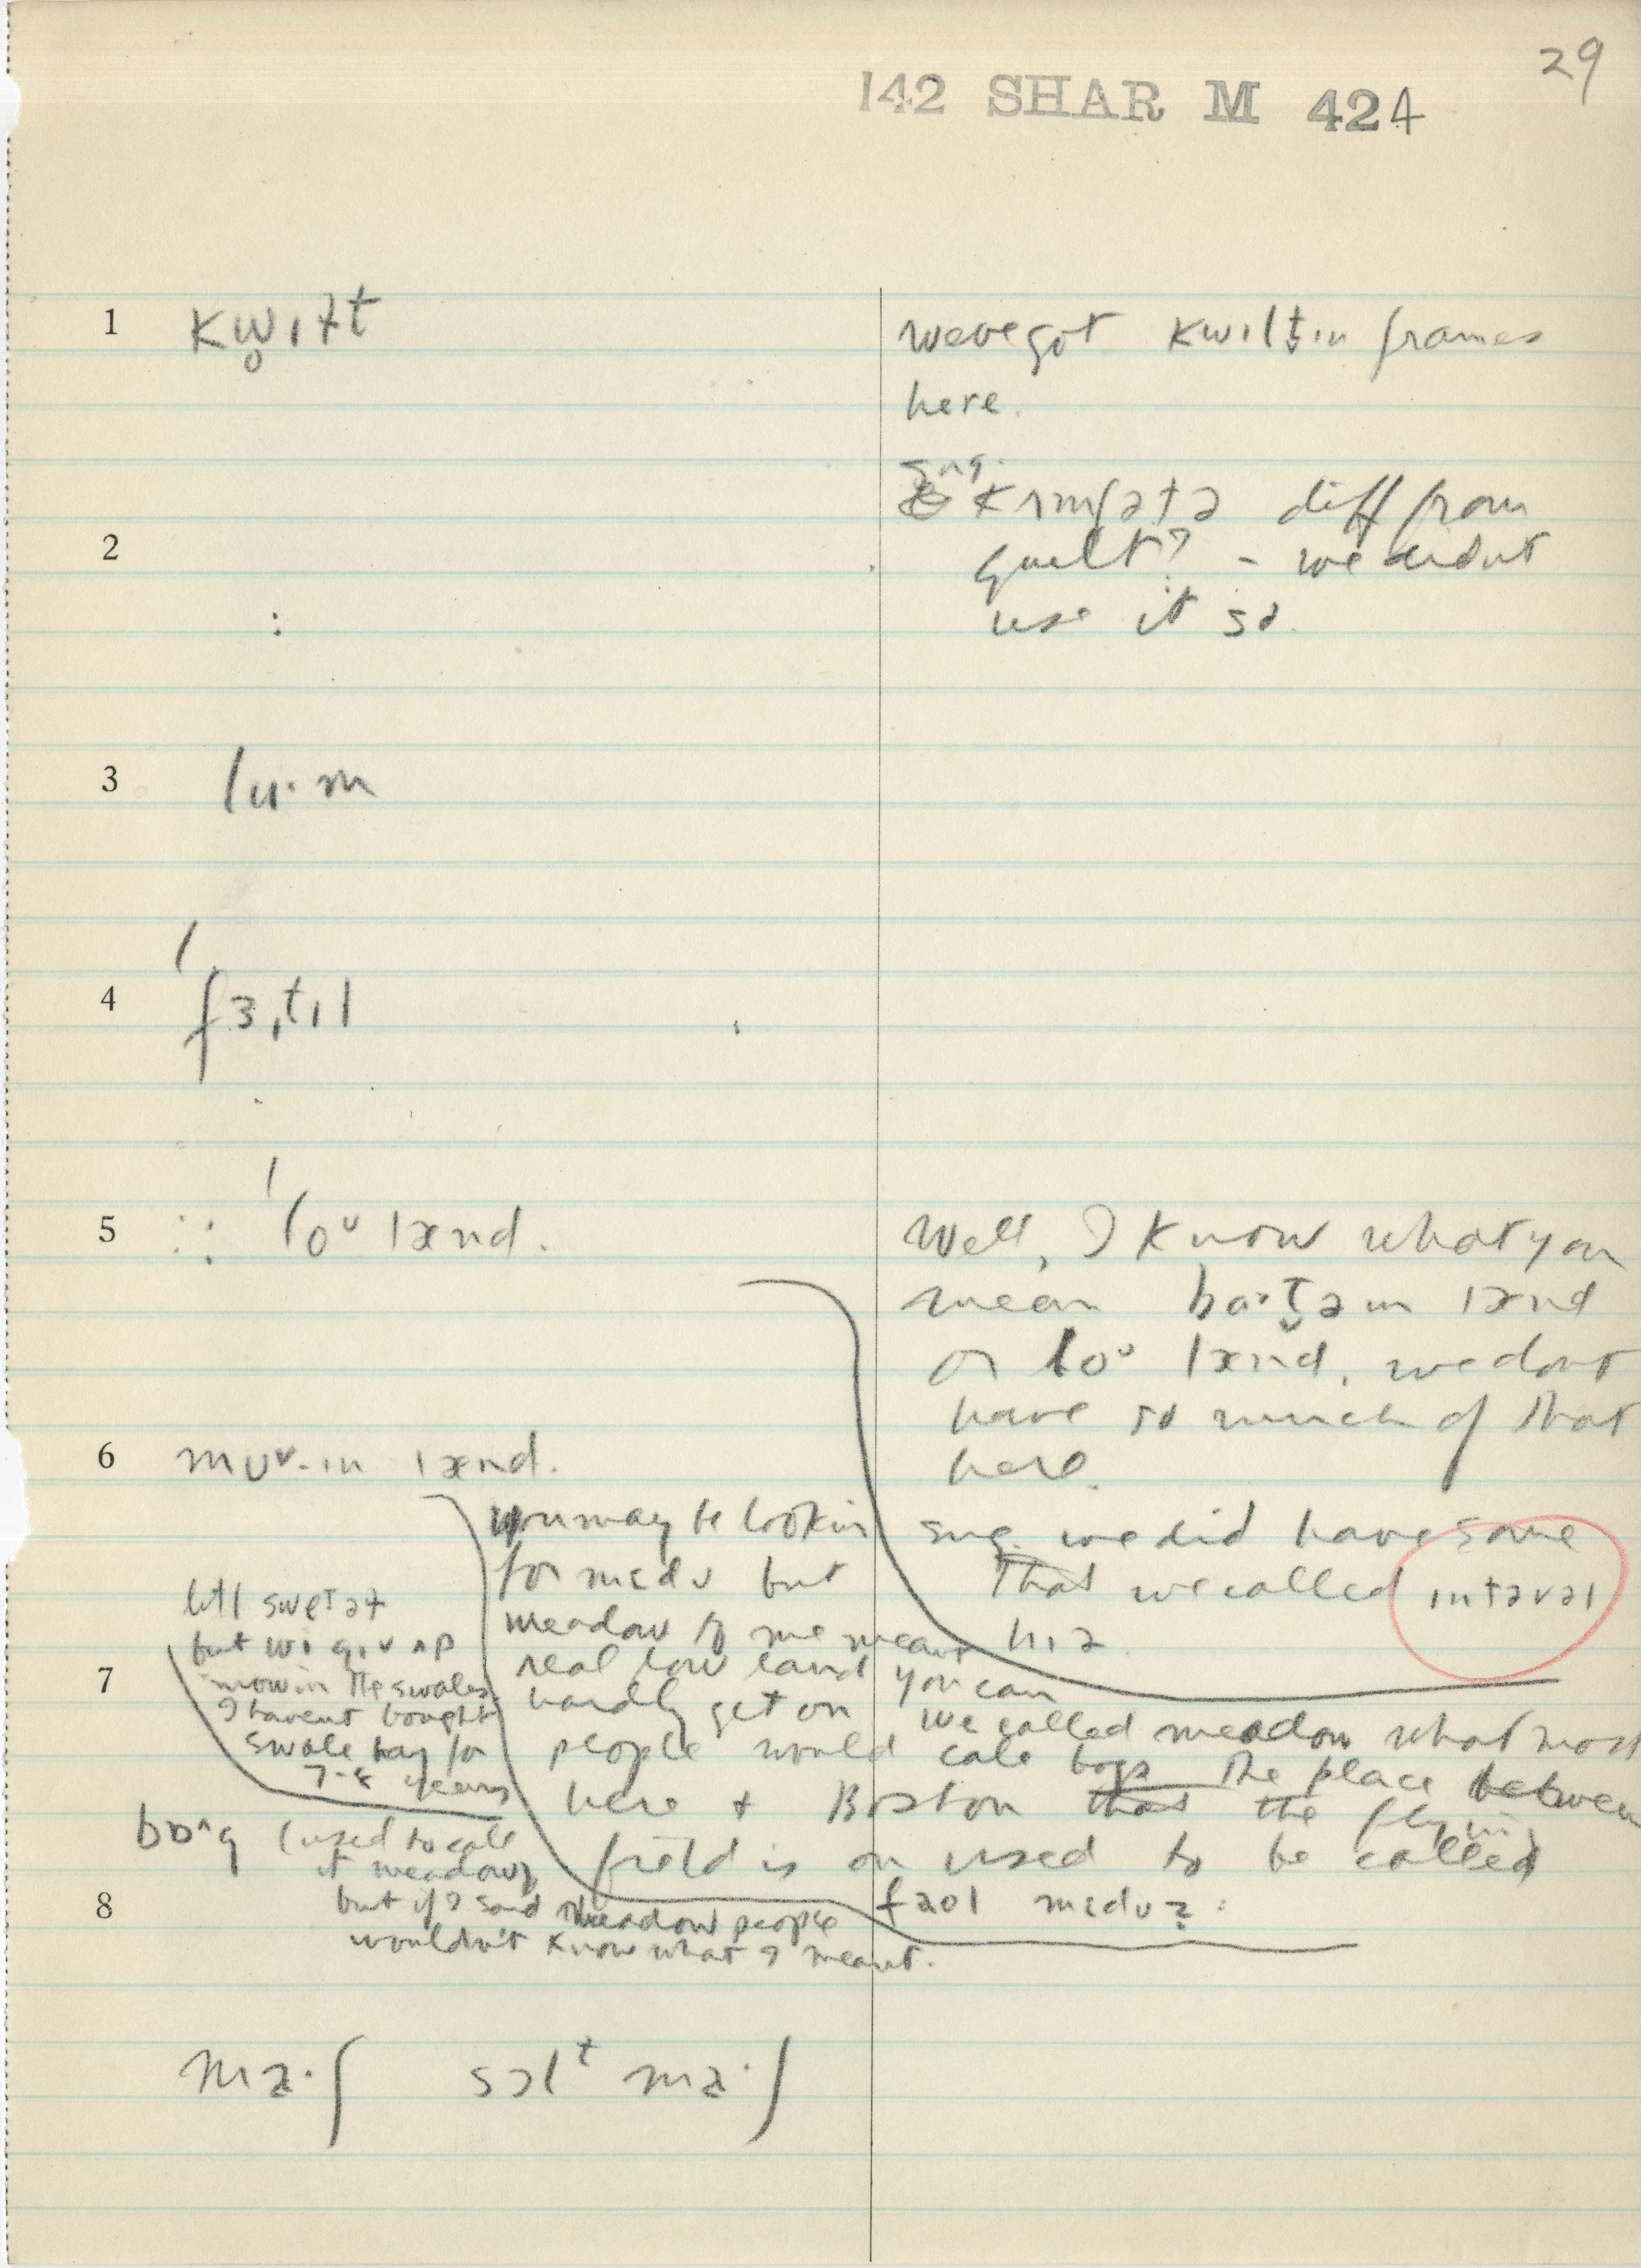 29
142 SHAR M 424
1 kw̥ɪɫt
weve got kwɪltɪn frames
here.
sug.
kʌmfətə diff from
2
quilt? – we didnt
use it so.
3 lu·m
4 ˈfɜ,tɪl
5 ˈloᵘ lænd.
Well, I know what you
mean ba·t̬əm lænd
or loᵘ lænd. we dont
have so much of that
here.
6 mʊᵛ·ɪn lænd.
sug. we did have some
that we called ɪntəvəl
hɪə
you may be lookin
for mɛdʊ but
meadow to me meant
real low land you can
hardly get on we called meadow what most
people would call bogs the place between
here + Boston that the flyin
field is on used to be called
faʊl mɛdʊz
but wi gɪv ʌp
mowin the swales
I havent bought
swale hay for
7-8 years
7
bɒˆg (used to call
it meadow)
but if I said meadow people
wouldn't know what I meant.
8
ma·ʃ sɔlᵗ ma·ʃ